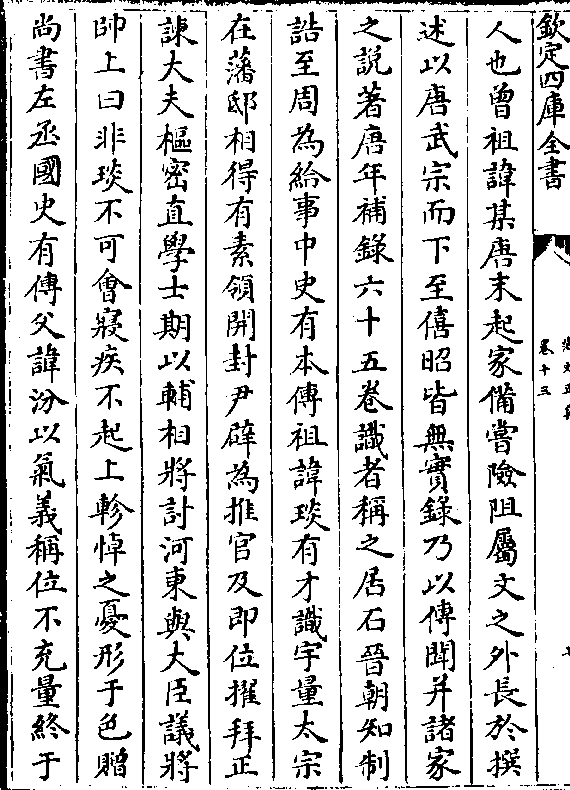 欽定四庫全書
卷十三
人也曾祖諱某唐末起家備嘗險阻屬文之外長於撰
述以唐武宗而下至僖昭皆無實錄乃以傳聞并諸家
之説著唐年補錄六十五卷識者稱之居石晉朝知制
誥至周為給事中史有本傳祖諱琰有才識宇量太宗
在藩邸相得有素領開封尹辟為推官及即位擢拜正
諫大夫樞密直學士期以輔相將討河東與大臣議將
帥上曰非琰不可會寢疾不起上軫悼之憂形于色贈
尚書左丞國史有傳父諱汾以氣義稱位不充量終于